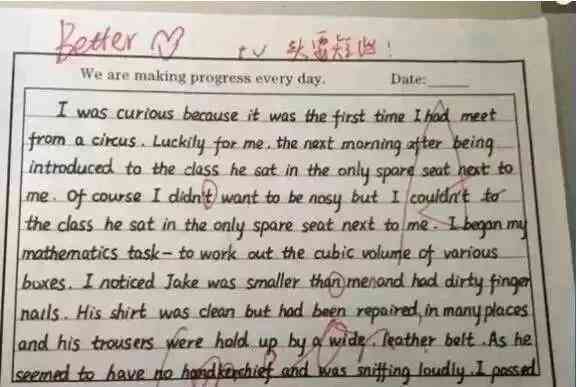 Better ♡ t v 头要短!
We are making progress every day. Date:
I was curious because it was the first time I had meet
from a circus. Luckily for me, the next morning after being
introduced to the class he sat in the only spare seat next to
me. Of course I didn't want to be nosy but I couldn't to
the class he sat in the only spare seat next to me. I began my
mathematics task - to work out the cubic volume of various
boxes. I noticed Jake was smaller than menand had dirty finger
nails. His shirt was clean but had been repaired, in many places
and his trousers were hold up by a wide, leather belt. As he
seemed to have no handkerchief and was sniffing loudly. I passed